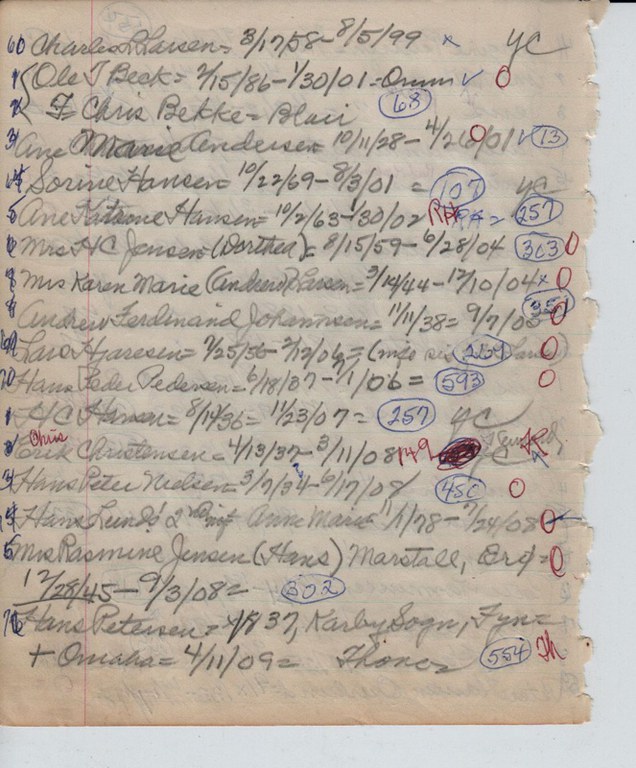 60 Charles P. Larsen = 3/17/58 - 8/5/99 x yc
1 Ole T Beck = 2/15/86 - 1/30/01 = Omm ✓ O
2 F Chris Bekke = Blair 68
3 Ane Marie Andersen = 10/11/28 - 4/26/01 ✓ 13
4 Sorine Hansen = 10/22/69 - 8/3/01 = 107 yc
5 Ane Katrine Hansen = 10/2/63 - 1/30/02 = 257
6 Mrs HC Jensen (Dorthea) = 8/15/59 - 6/28/04 303 O
Mrs Karen Marie (Andrew P Larsen = 3/14/44 - 12/10/04 x O
8 Andrew Ferdinand Johannsen = 11/11/38 = 9/7/05 351 O
69 Lars Hjaresen = 7/25/56 - 2/12/06 = O
70 Hans Peder Pedersen = 6/18/37 - 7/1/06 = 593 O
1 HC Hansen = 8/14/36 = 11/23/07 = 257 yc
2 Chris Erik Christensen = 4/13/37 - 3/11/08 149 yc R
3 Hans Peter Nielsen = 3/7/34 - 6/17/08 450 O
4 Hans Lund's 2nd Anne Marie 11/1/78 - 7/24/08 O
5 Mrs Rasmine Jensen (Hans) Marstall, = O
12/28/45 - 9/3/08 = 302
76 Hans Petersen = 1837, Karby Sogn, Fyn =
+ Omaha = 4/11/09 = 554 Th